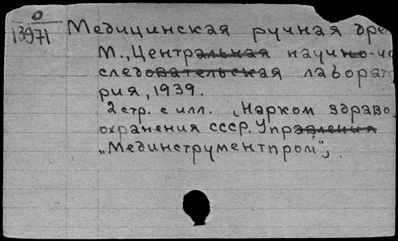 0
13971
Медицинская ручная дре
М., Центральная научно-ис
следовательская лаборат
рия, 1939.
2 стр. с илл. (Нарком здраво
охранения СССР. Управления
„Мединструментпром“).